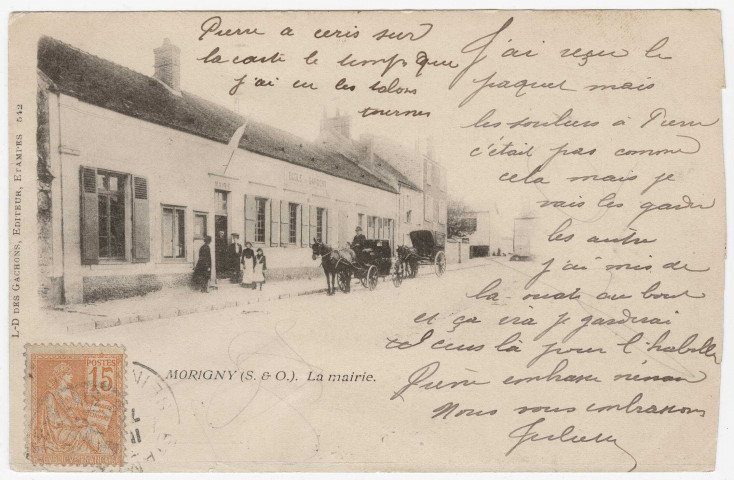 Pierre a ecris sur
la carte le temps que
j'ai eu les talons
tournes
J'ai reçu le
paquet mais
les souliers à Pierre
c'était pas comme
cela mais je
vais les garder
les autre
j'ai mis de
la ouate au bout
et ça ira je garderai
ceus là pour l'habiller
Pierre embrasse
Nous vous embrassons
MAIRIE
L.-D DES GACHONS, EDITEUR, ETAMPES 542
POSTES
15
MORIGNY (S. & O.). La mairie.